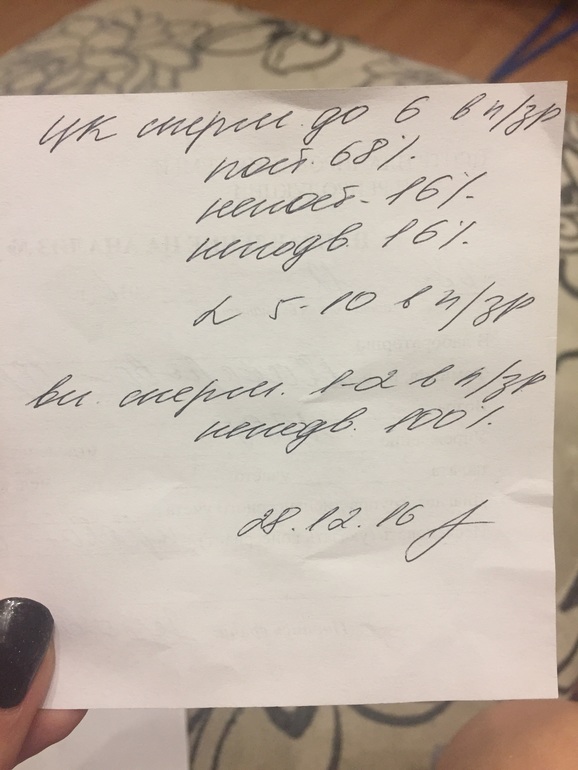 цк сперм. до 6 в п/зр
пост. 68%.
непост. 16%.
неподв. 16%.
L 5-10 в п/зр
вл. сперм. 1-2 в п/зр
неподв. 100%.
28.12.16